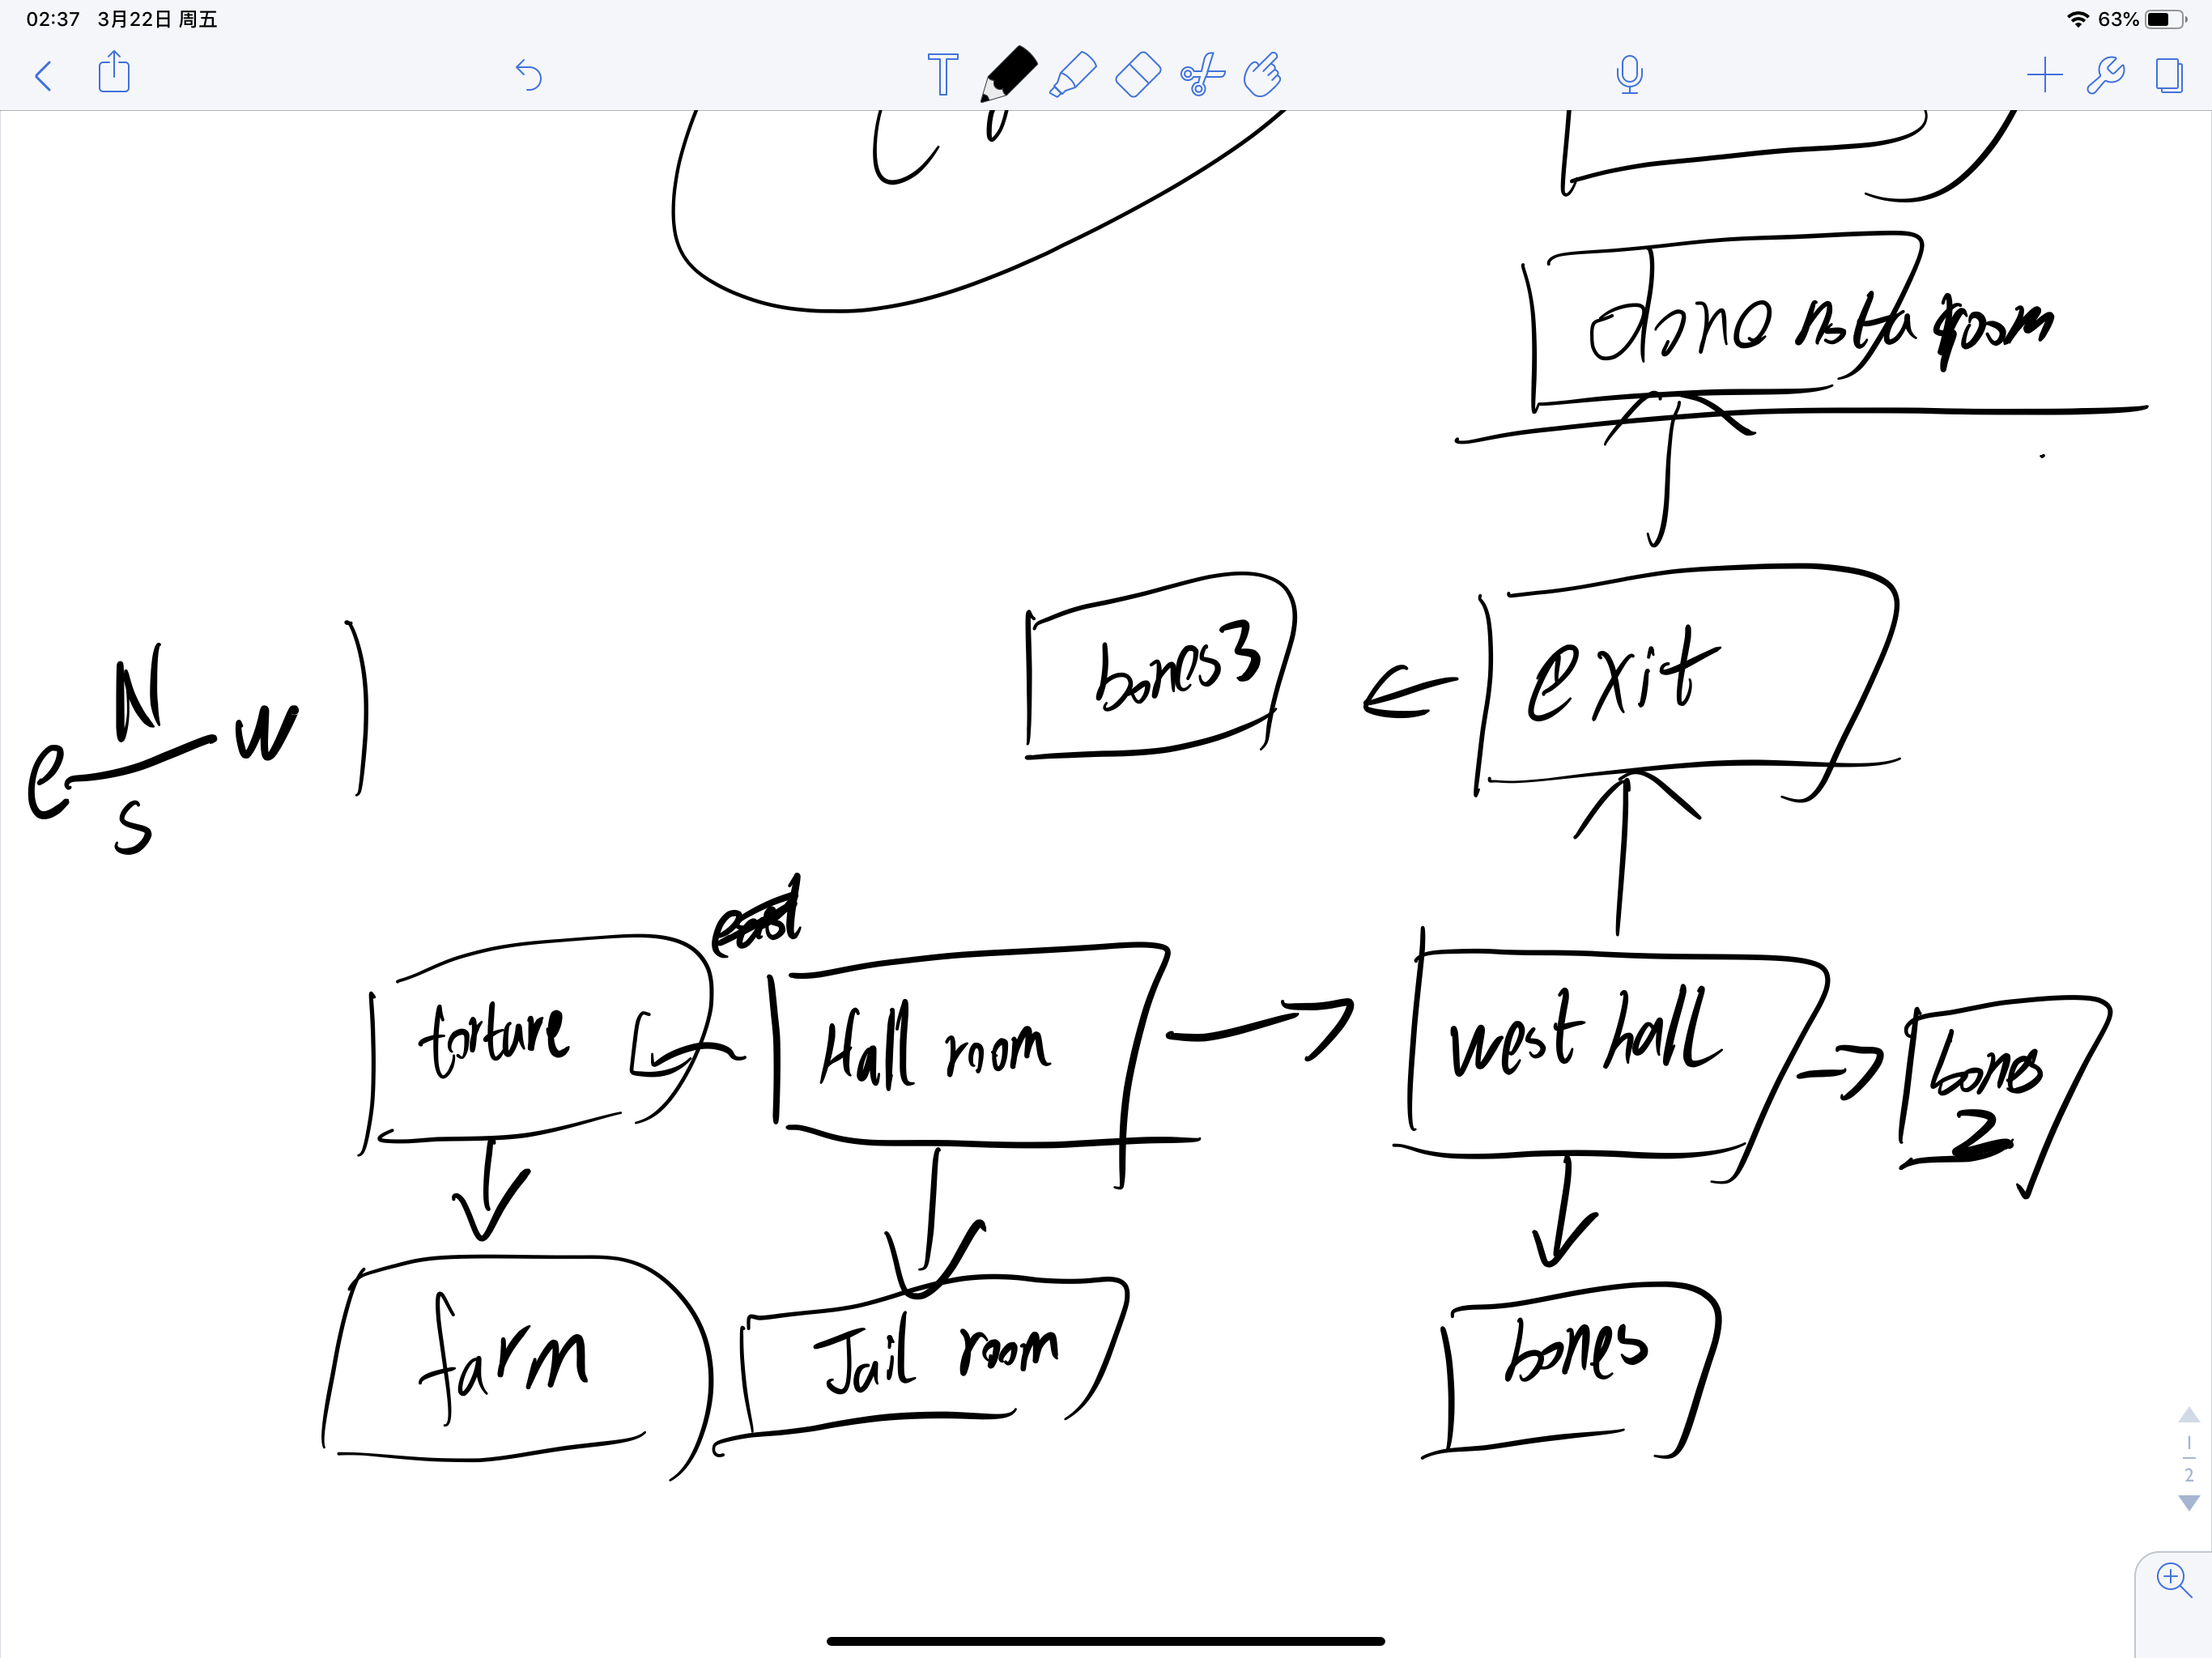 02:37 3月22日 周五
63%
room
bones3
exit
N
e w
s
torture
Hall room
west hall
bones
2
farm
Jail room
bones
1
2